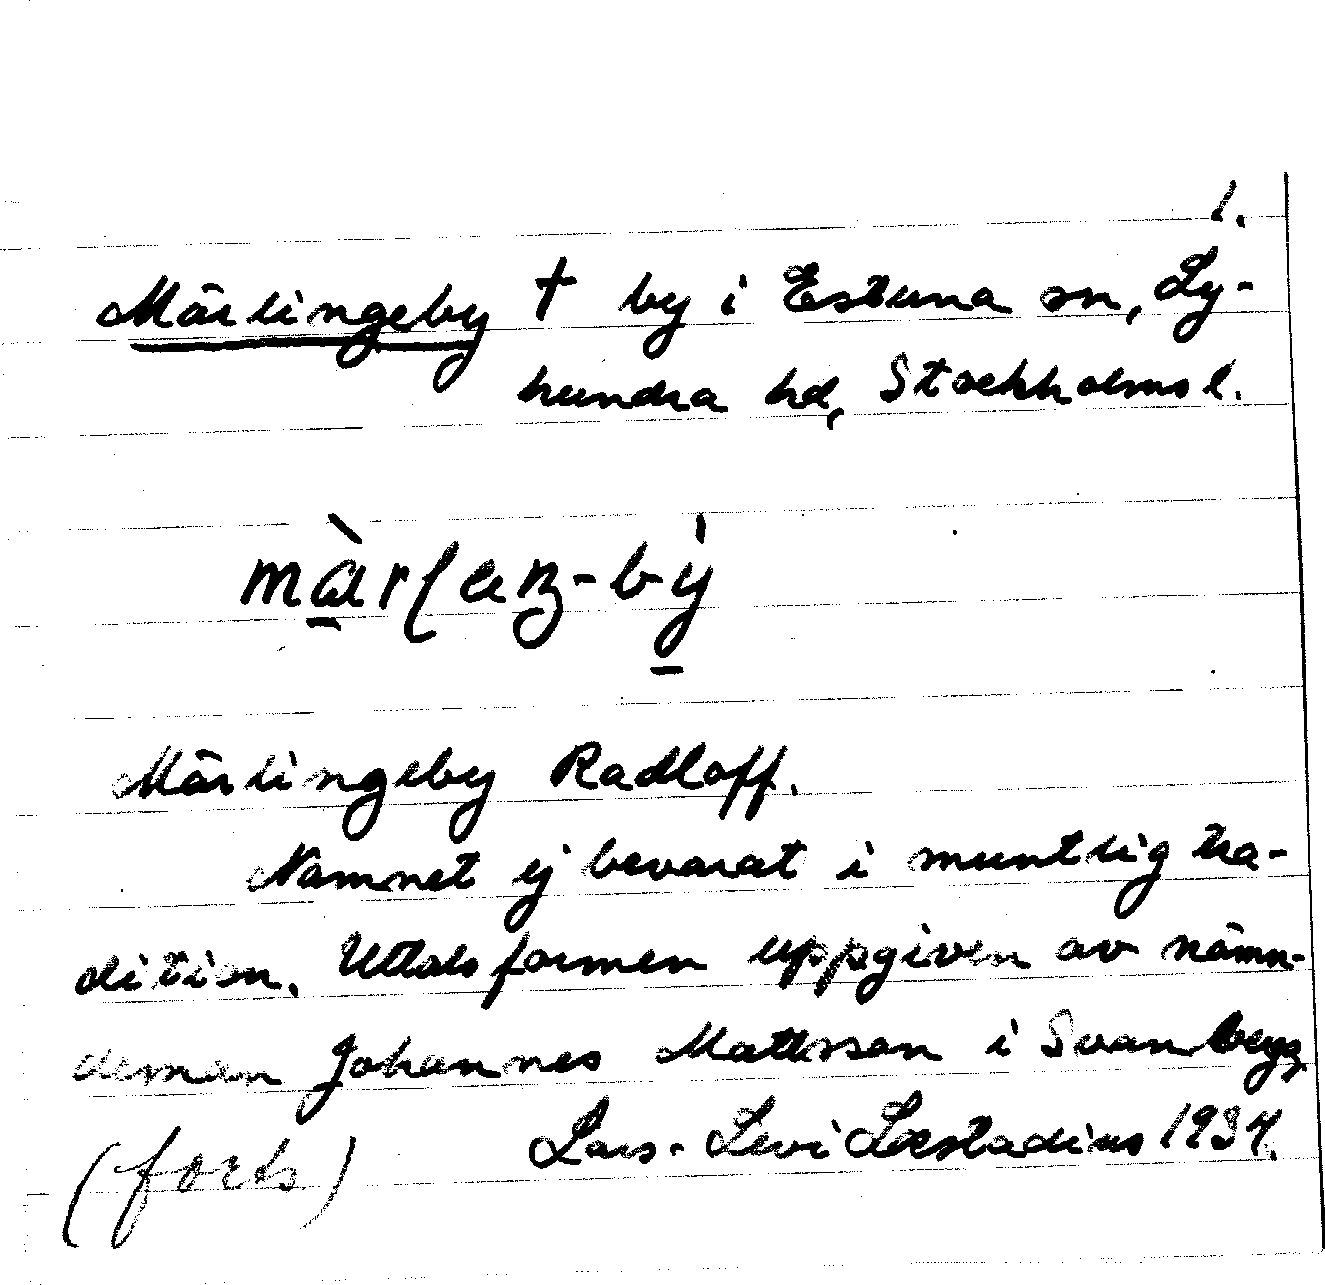 1.
Märlingeby † by i Estuna sn, Ly-
hundra hd, Stockholms l.
Märlingeby Radloff.
Namnet ej bevarat i muntlig tra-
dition. Uttalsformen uppgiven av nämn-
deman Johannes Mattsson i Svanberga
Lars-Levi Læstadius 1934.
(forts)